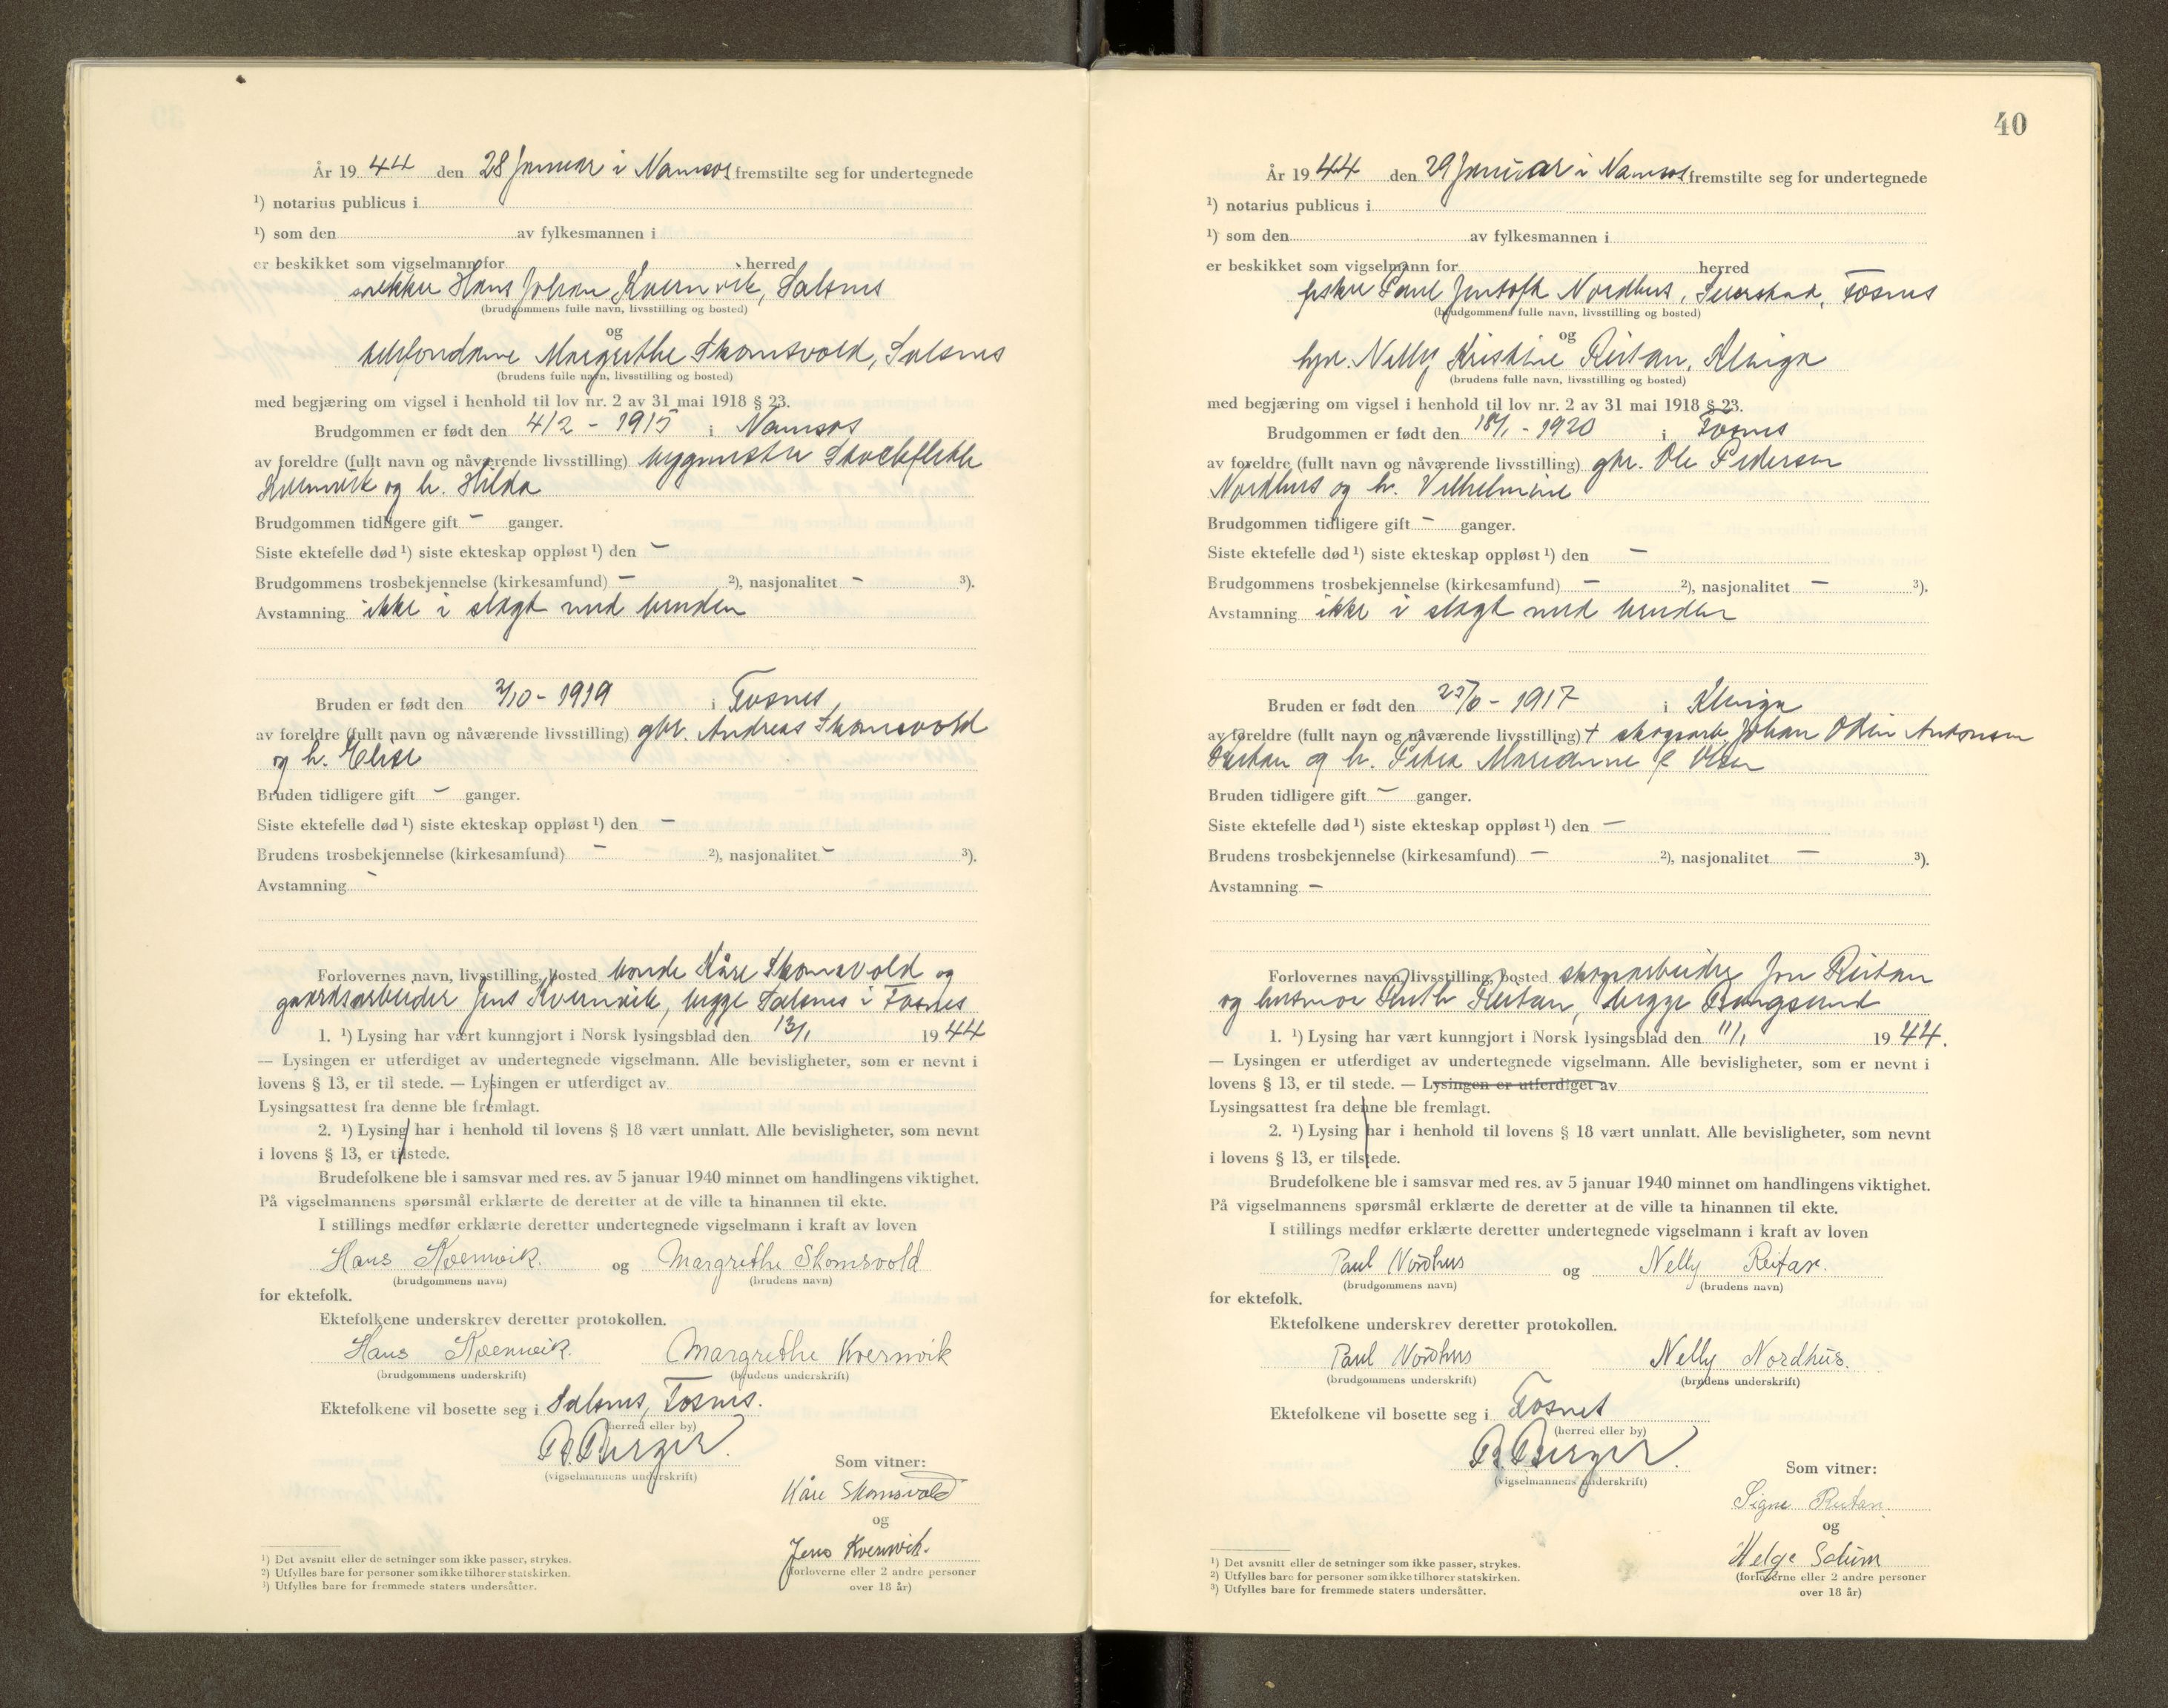 År 19 44 den 28 Januar i Namsos fremstilte seg for undertegnede
¹) notarius publicus i
¹) som den av fylkesmannen i
er beskikket som vigselmann for herred
snekker Hans Johan Kvernvik, Salsnes
(brudgommens fulle navn, livsstilling og bosted)
og
telefondame Margrethe Skomsvold, Salsnes
(brudens fulle navn, livsstilling og bosted)
med begjæring om vigsel i henhold til lov nr. 2 av 31 mai 1918 § 23.
Brudgommen er født den 4/2 - 1915 i Namsos
av foreldre (fullt navn og nåværende livsstilling) byggmester Stockfleth
Kvernvik og h. Hilda
Brudgommen tidligere gift - ganger.
Siste ektefelle død ¹) siste ekteskap oppløst ¹) den -
Brudgommens trosbekjennelse (kirkesamfund) - ²), nasjonalitet - ³).
Avstamning ikke i slägt med bruden
Bruden er født den 2/10 - 1919 i Fosnes
av foreldre (fullt navn og nåværende livsstilling) gbr. Andreas Skomsvold
og h. Elise
Bruden tidligere gift - ganger.
Siste ektefelle død ¹) siste ekteskap oppløst ¹) den -
Brudens trosbekjennelse (kirkesamfund) - ²), nasjonalitet - ³).
Avstamning -
Forlovernes navn, livsstilling, bosted bonde Kåre Skomsvold og
gaardsarbeider Jens Kvernvik, begge Salsnes i Fosnes
1. ¹) Lysing har vært kunngjort i Norsk lysingsblad den 13/1 19 44
— Lysingen er utferdiget av undertegnede vigselmann. Alle bevisligheter, som er nevnt i
lovens § 13, er til stede. — Lysingen er utferdiget av
Lysingsattest fra denne ble fremlagt.
2. ¹) Lysing har i henhold til lovens § 18 vært unnlatt. Alle bevisligheter, som nevnt
i lovens § 13, er tilstede.
Brudefolkene ble i samsvar med res. av 5 januar 1940 minnet om handlingens viktighet.
På vigselmannens spørsmål erklærte de deretter at de ville ta hinannen til ekte.
I stillings medfør erklærte deretter undertegnede vigselmann i kraft av loven
Hans Kvernvik. og Margrethe Skomsvold
(brudgommens navn) (brudens navn)
for ektefolk.
Ektefolkene underskrev deretter protokollen.
Hans Kvernvik. Margrethe Kvernvik
(brudgommens underskrift) (brudens underskrift)
Ektefolkene vil bosette seg i Salsnes, Fosnes.
(herred eller by)
B. Berger.
(vigselmannens underskrift)
Som vitner:
Kåre Skomsvold
og
Jens Kvernvik.
(forloverne eller 2 andre personer
over 18 år)
¹) Det avsnitt eller de setninger som ikke passer, strykes.
²) Utfylles bare for personer som ikke tilhører statskirken.
³) Utfylles bare for fremmede staters undersåtter.
40
År 19 44 den 29 Januar i Namsos fremstilte seg for undertegnede
¹) notarius publicus i
¹) som den av fylkesmannen i
er beskikket som vigselmann for herred
fisker Paul Jentoft Nordhus, Seierstad, Fosnes
(brudgommens fulle navn, livsstilling og bosted)
og
hyr. Nelly Kristine Reitan, Klinga
(brudens fulle navn, livsstilling og bosted)
med begjæring om vigsel i henhold til lov nr. 2 av 31 mai 1918 § 23.
Brudgommen er født den 18/1 - 1920 i Fosnes
av foreldre (fullt navn og nåværende livsstilling) gbr. Ole Pedersen
Nordhus og h. Vilhelmine
Brudgommen tidligere gift - ganger.
Siste ektefelle død ¹) siste ekteskap oppløst ¹) den -
Brudgommens trosbekjennelse (kirkesamfund) - ²), nasjonalitet - ³).
Avstamning ikke i slägt med bruden
Bruden er født den - 1917 i Klinga
av foreldre (fullt navn og nåværende livsstilling) + skogsarb. Johan Odin Antonsen
Reitan og h. Petra Marianne f. Olsen
Bruden tidligere gift - ganger.
Siste ektefelle død ¹) siste ekteskap oppløst ¹) den -
Brudens trosbekjennelse (kirkesamfund) - ²), nasjonalitet - ³).
Avstamning -
Forlovernes navn, livsstilling, bosted skogsarbeider Jon Reitan
og husmor Ruth Reitan, begge Bangsund
1. ¹) Lysing har vært kunngjort i Norsk lysingsblad den 11/1 19 44.
— Lysingen er utferdiget av undertegnede vigselmann. Alle bevisligheter, som er nevnt i
lovens § 13, er til stede. — Lysingen er utferdiget av
Lysingsattest fra denne ble fremlagt.
2. ¹) Lysing har i henhold til lovens § 18 vært unnlatt. Alle bevisligheter, som nevnt
i lovens § 13, er tilstede.
Brudefolkene ble i samsvar med res. av 5 januar 1940 minnet om handlingens viktighet.
På vigselmannens spørsmål erklærte de deretter at de ville ta hinannen til ekte.
I stillings medfør erklærte deretter undertegnede vigselmann i kraft av loven
Paul Nordhus og Nelly Reitan.
(brudgommens navn) (brudens navn)
for ektefolk.
Ektefolkene underskrev deretter protokollen.
Paul Nordhus Nelly Nordhus.
(brudgommens underskrift) (brudens underskrift)
Ektefolkene vil bosette seg i Fosnes
(herred eller by)
B. Berger.
(vigselmannens underskrift)
Som vitner:
Signe Reitan.
og
Helge Solum
(forloverne eller 2 andre personer
over 18 år)
¹) Det avsnitt eller de setninger som ikke passer, strykes.
²) Utfylles bare for personer som ikke tilhører statskirken.
³) Utfylles bare for fremmede staters undersåtter.